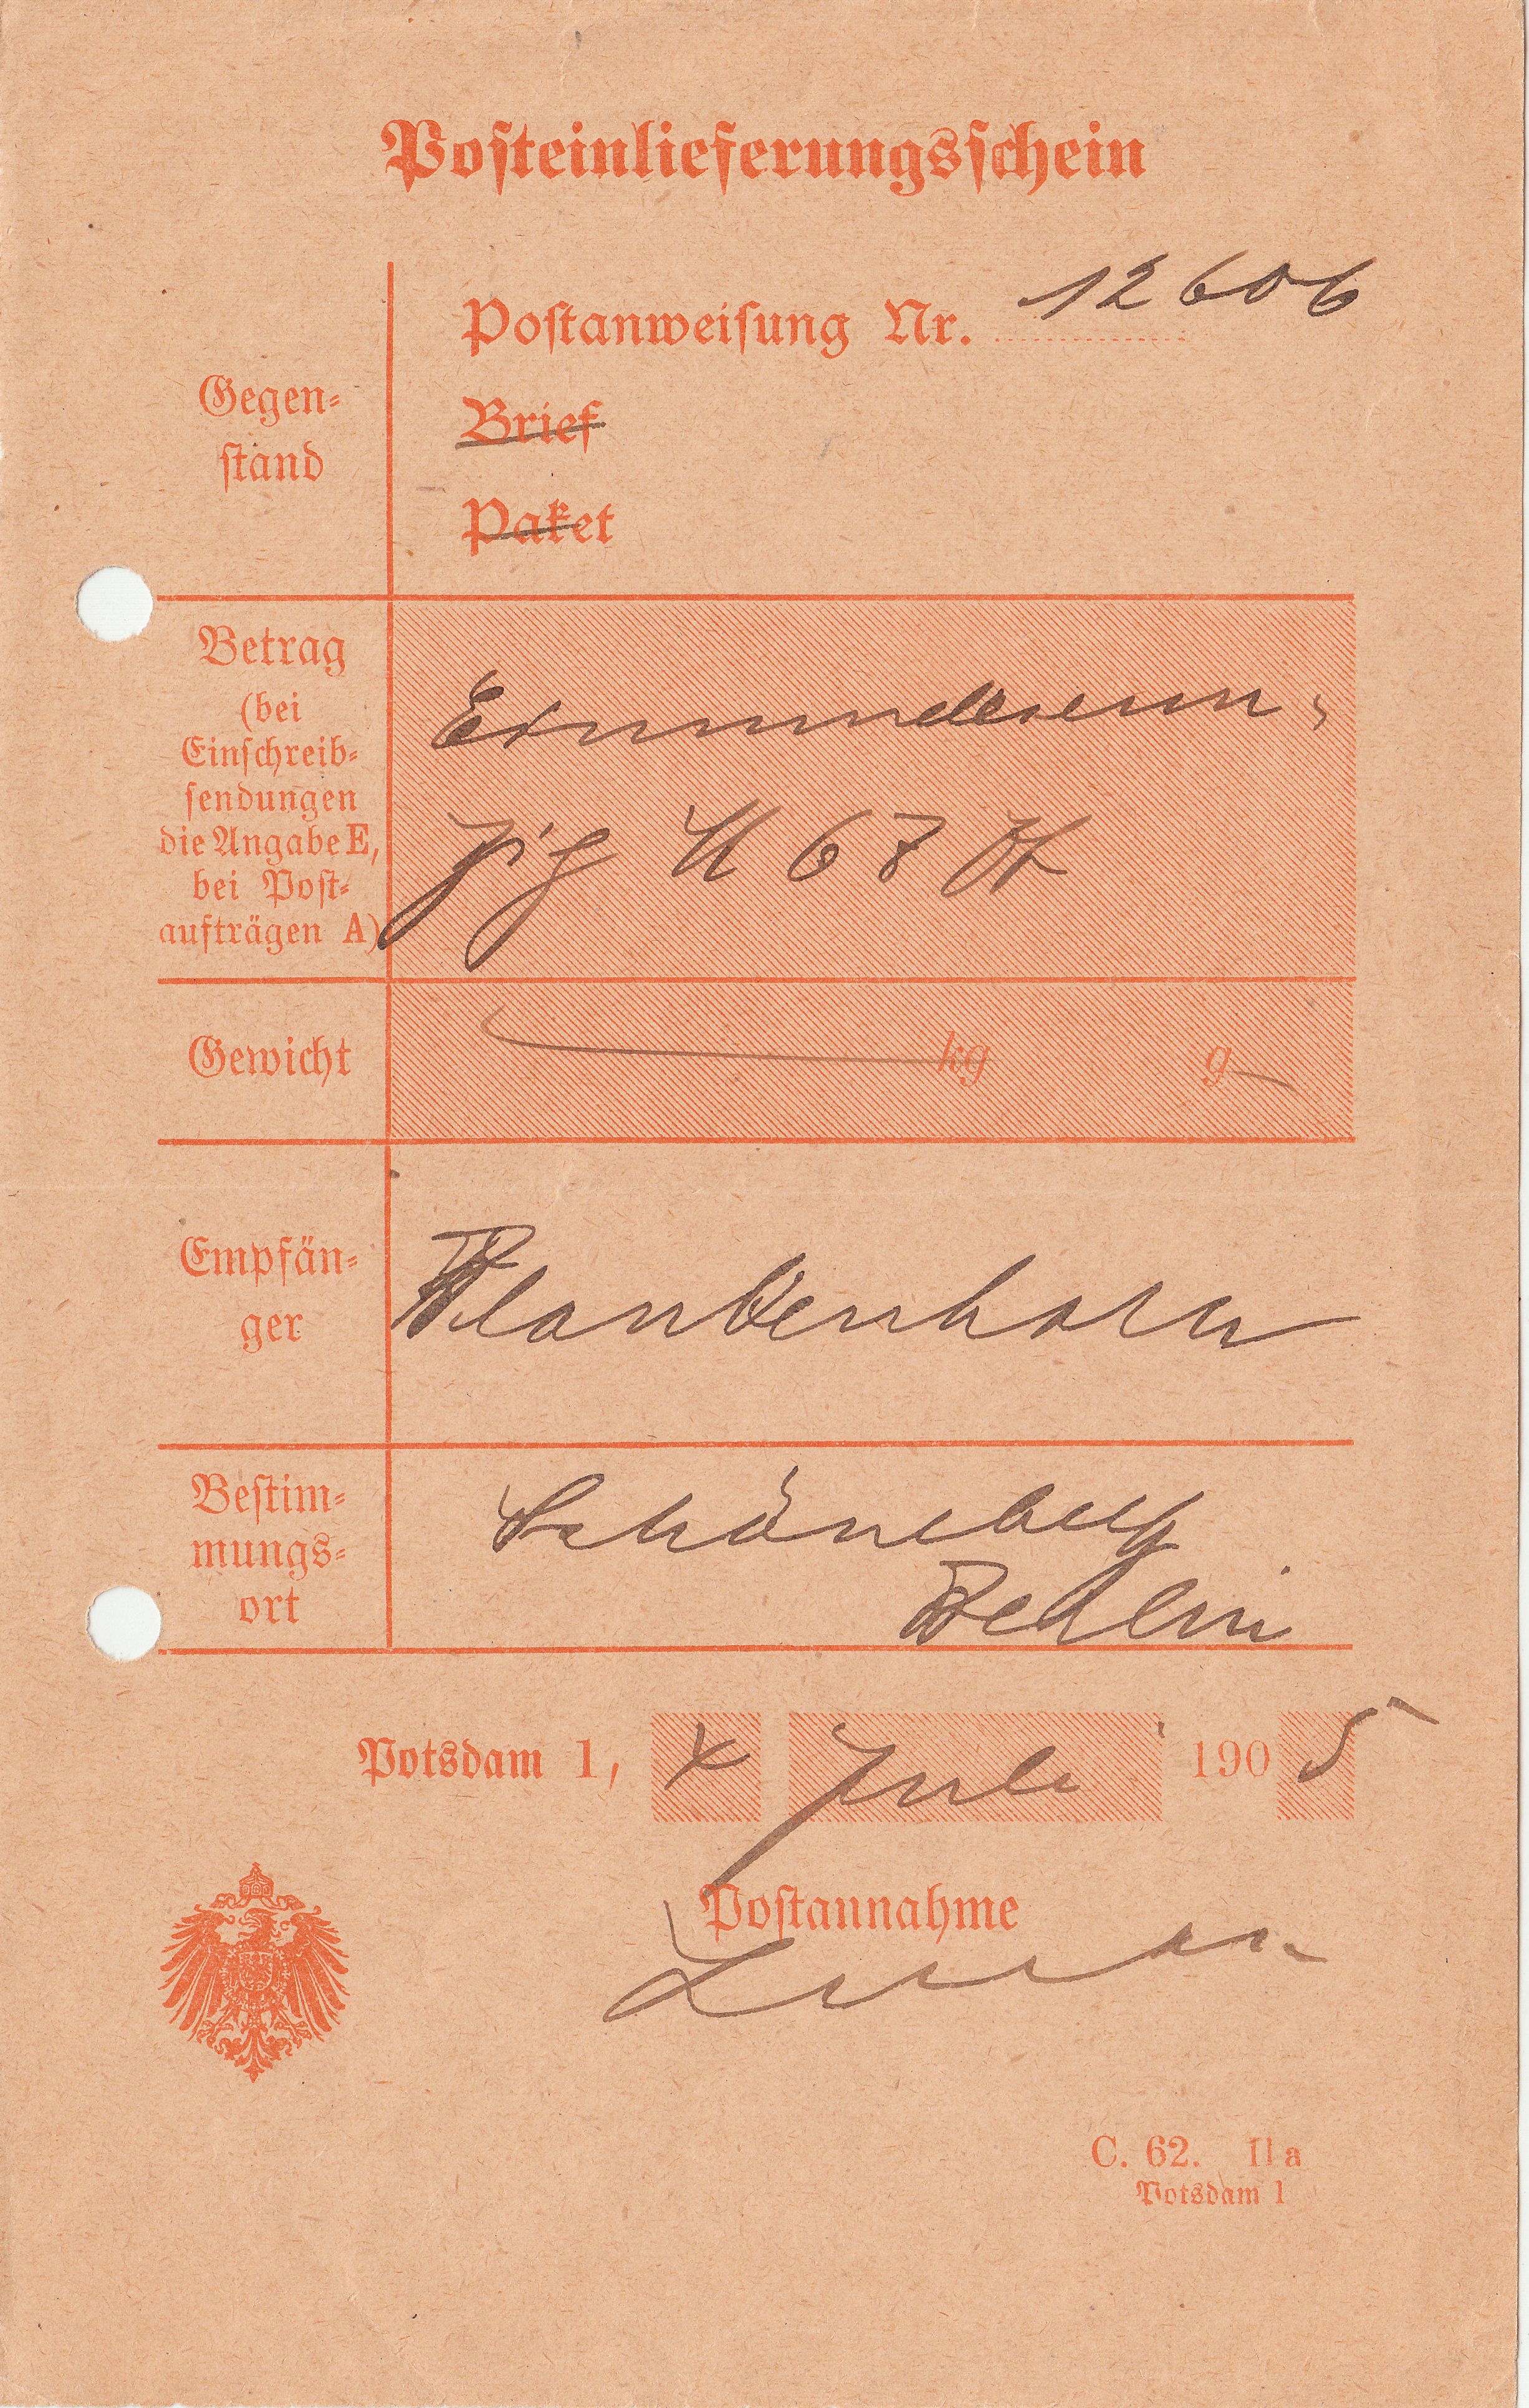 Posteinlieferungsschein
Gegen-
stand
Postanweisung Nr. 12606
Brief
Paket
Betrag
(bei
Einschreib-
sendungen
die Angabe E,
bei Post-
aufträgen A)
zig M 67 Pf
Gewicht
kg g
Empfän-
ger
Blankenhorn
Bestim-
mungs-
ort
Schöneberg
Berlin
Potsdam 1, 4 Juli 1905
Postannahme
C. 62. II a
Potsdam 1